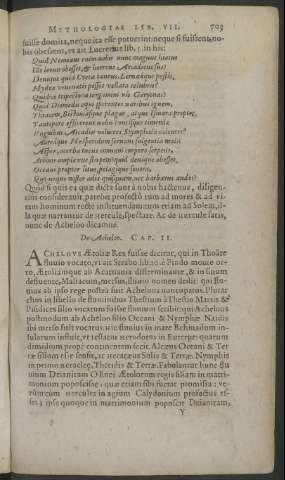 MYTHOLOGIAE LIB. VII. 703
fuisse domita, neque ita esse potuerint: neque si fuissent, no-
bis obessent, et ait Lucretius lib. 5. in his:
Quid Nemeaeus enim nobis nunc magnus hiatus
Ille leonis obesset, & horrens Arcadius sus?
Denique quid Cretae taurus, Lernaeaque pestis,
Hydra venenatis posset vallata colubris?
Quidve tripectora tergemini vis Geryonai?
Quid Diomedis equi spirantes naribus ignem,
Thracem, Bistoniasque plagas, atque Ismara propter,
Tantopere officerent nobis
Vnguibus Arcadiae volucres Stymphala colentes?
Aureaque Hesperidum servans fulgentia mala
Asper, acerba tuens immani corpore serpens
Arboris amplexus stirpem? quid denique obesset,
Oceani propter litus, pelagique
Quò neque noster adit quisquam, nec barbarus audet?
Quòd si quis ea quae dicta sunt à nobis hactenus, diligen-
tius consideravit, patebit profectò tum ad mores & ad vi-
tam hominum rectè instituendam tum etiam ad Solem, il-
la quae narrantur de Hercule, spectare. At de Hercule satis,
nunc de Acheloo dicamus.
De Acheloo. CAP. II.
ACHELOVS Aetoliae Rex fuisse dicitur, qui in Thoäte
fluvio vocato, ut ait Strabo lib. 10. è Pindo monte or-
to, Aetoliamque ab Acarnania disterminante, & in sinum
defluente, Maliacum, mersus, fluvio nomen dedit: qui flu-
vius ab ipso rege postea fuit Achelous nuncupatus. Plutar-
chus in libello de fluminibus Thestium à Thestio Martis &
Pisidices filio vocatum fuisse flumen scribit: qui Achelous
postmodum ab Acheloo filio Oceani & Nymphae Naidis
ibi merso fuit vocatus. Hic fluvius in mare Echinadum in-
sularum influit, ut testatur Herodotus in Euterpe: quarum
dimidium prope continentem fecit. Alcaeus Oceani & Ter-
rae filium esse sensit, at Hecataeus Solis & Terrae Nymphis
in primo Heroico, Thetidis & Terrae. Fabulantur hunc flu-
vium Deianiram Oenei Aetolorum regis filiam in matri-
monium poposcisse: quae etiam sibi fuerat promissa: ve-
rùm cùm Hercules in agrum Calydonium profectus es-
set, & ipse quoque in matrimonium poposcit Deianiram,
Y